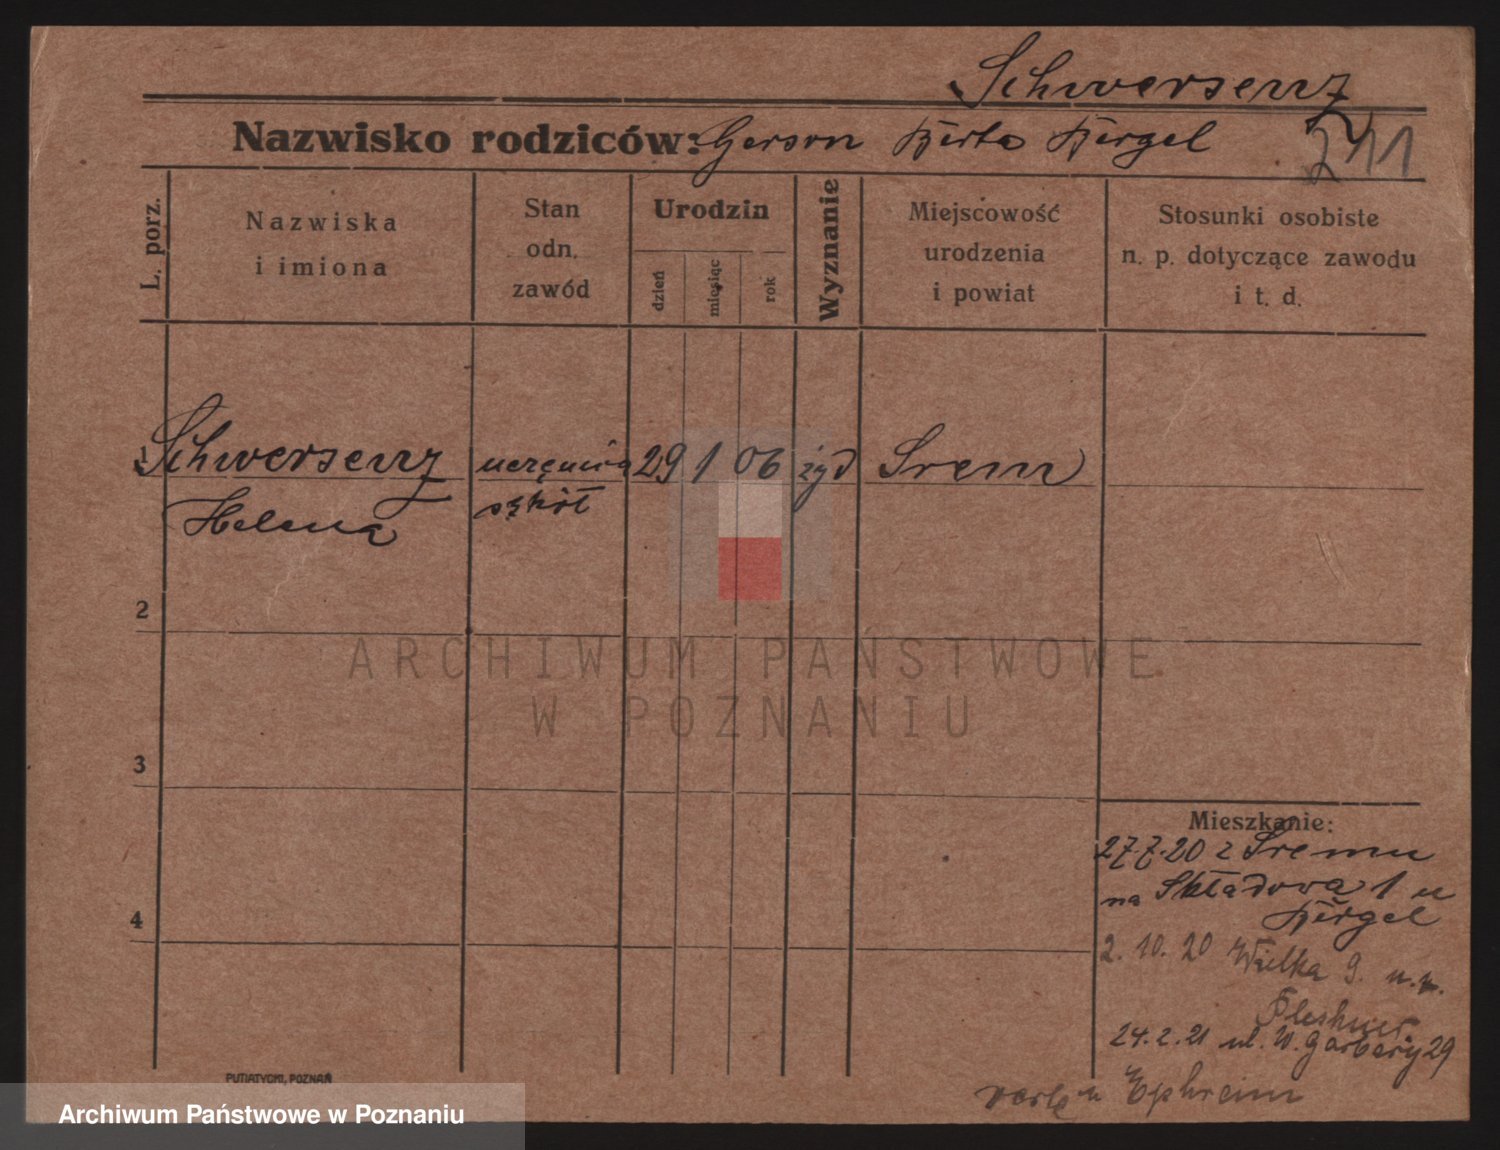 Schwersenz
Nazwisko rodziców: Gerson Berta Bergel
211
L. porz.
Nazwiska
i imiona
Stan
odn.
zawód
Urodzin
dzień
miesiąc
rok
Wyznanie
Miejscowość
urodzenia
i powiat
Stosunki osobiste
n. p. dotyczące zawodu
i t. d.
1 Schwersenz uczenica 29 1 06 żyd Srem
Helena szkół
2
ARCHIWUM PAŃSTWOWE
W POZNANIU
3
Mieszkanie:
27.7.20 z Sremu
na Składowa 1 u
Bergel
4
2. 10. 20 Wielka 9. u.
24.2.21 ul. W. Garbary 29
u Ephraim
PUTIATYCKI, POZNAŃ
Archiwum Państwowe w Poznaniu